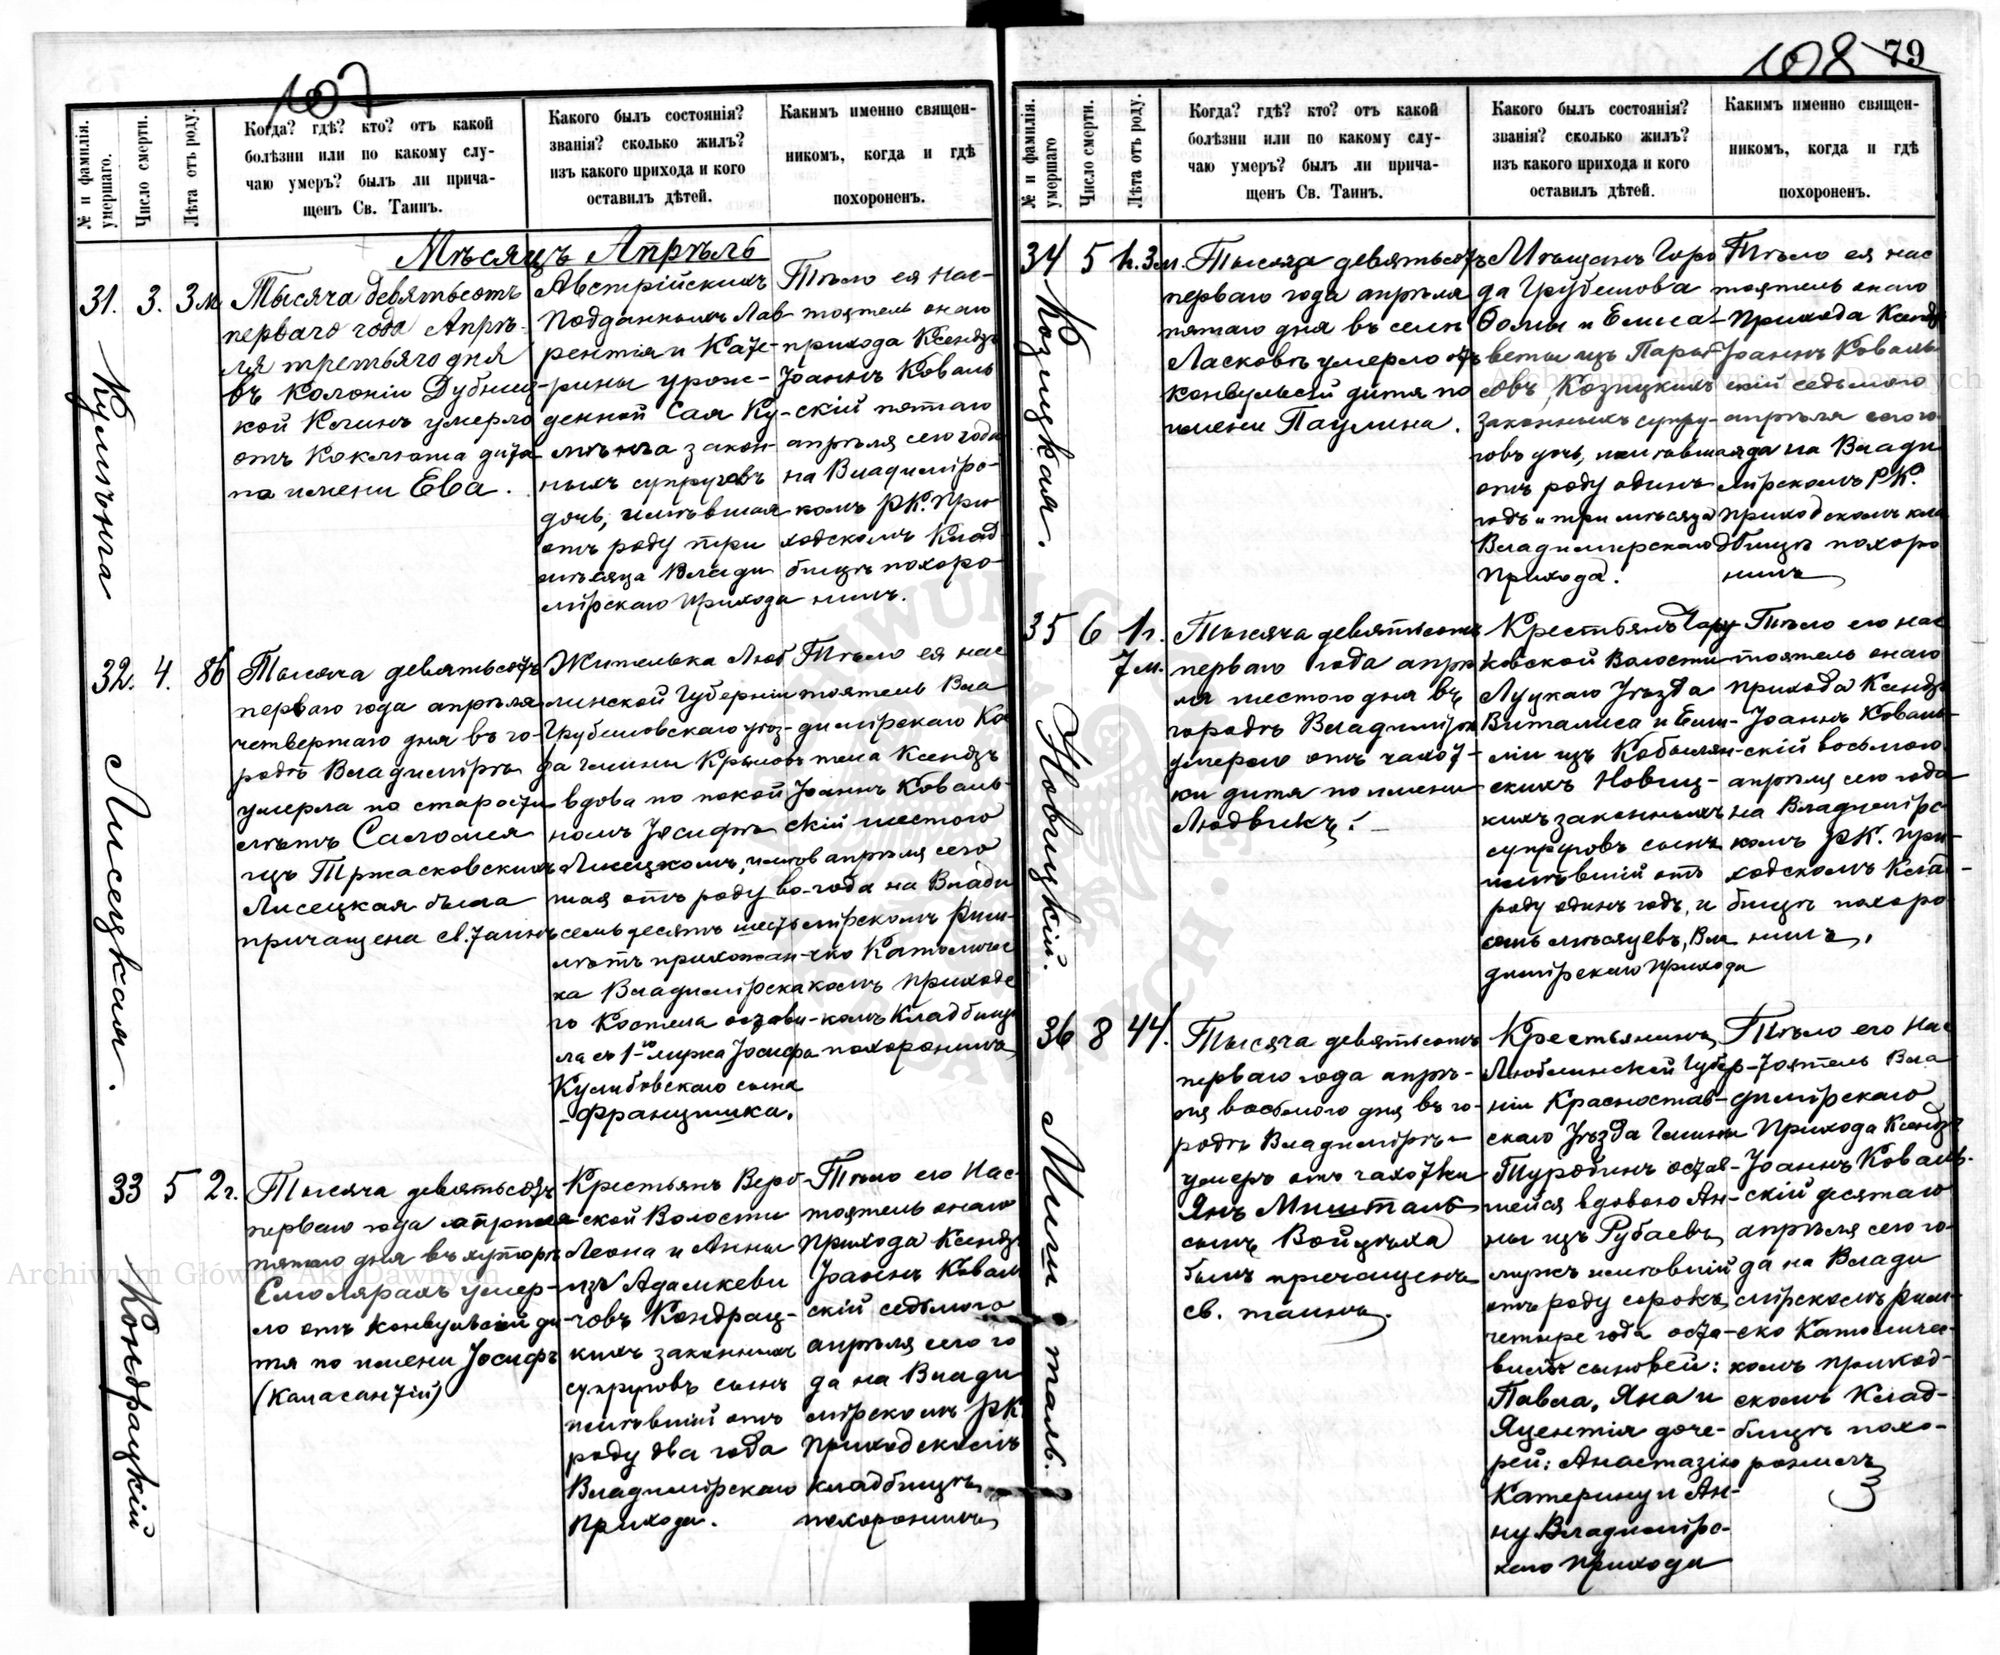 107
№ и фамилія. умершаго.
Число смерти.
Лѣта отъ роду.
Когда? гдѣ? кто? отъ какой
болѣзни или по какому слу-
чаю умеръ? былъ ли прича-
щенъ Св. Таинъ.
Какого былъ состоянія?
званія? сколько жилъ?
изъ какого прихода и кого
оставилъ дѣтей.
Какимъ именно священ-
никомъ, когда и гдѣ
похороненъ.
Мѣсяцъ Апрѣль
31.
3.
3 м
Тысяча девятьсотъ
перваго года Апрѣ-
ля третьяго дня
въ Колоніи Дубниц-
кой умерло
отъ коклюша дитя
по имени Ева.
Австрійскихъ
подданныхъ Лав-
рентія и Кате-
рины урож-
денной Сая Ку-
закон-
ныхъ супруговъ
дочь, имѣвшая
отъ роду три
мѣсяца Влади
мірскаго прихода
Тѣло ея Нас-
тоятель онаго
прихода Ксендзъ
Іоаннъ Коваль
скій пятаго
апрѣля сего года
на Владиміро-
комъ Р.К. При
ходскомъ Клад-
бищѣ похоро-
нилъ.
32.
4.
86
Лисецкая.
Тысяча девятьсотъ
перваго года апрѣля
четвертаго дня въ го-
родѣ Владимірѣ
умерла по старости
лѣтъ Саломея
изъ Тржасковскихъ
Лисецкая была
причащена св. таинъ
Жителька Люб
линской Губерніи
Грубешовскаго уѣз-
да гмини Крыловъ
вдова по покой
номъ Іосифѣ
Лисецкомъ, имѣв
шая отъ роду во-
семьдесятъ шесть
лѣтъ прихожан-
ка Владимірска
го Костела остави-
ла съ 1-го мужа Іосифа
Кулибовскаго сына
Францишка.
Тѣло ея нас
тоятель Вла
димірскаго Ко
тела Ксендзъ
Іоаннъ Коваль-
скій шестого
апрѣля сего
года на Влади
мірскомъ Рим-
ско Католичес
комъ приходс
комъ Кладбищѣ
похоронилъ
33
5
2 г.
Кондрацкій
Тысяча девятьсотъ
перваго года апрѣля
пятаго дня въ хуторѣ
Смолярахъ умер-
ло отъ конвульсій ди
тя по имени Іосифъ
(Каласантій)
Крестьянъ Верб-
ской Волости
Леона и Анны
изъ Адамкеви
човъ Кондрац-
кихъ законныхъ
супруговъ сынъ
имѣвшій отъ
роду два года
Владимірскаго
Прихода.
Тѣло его Нас-
тоятель онаго
Прихода Ксендзъ
Іоаннъ Коваль
скій седьмого
апрѣля сего го
да на Влади
мірскомъ Р.К.
Приходскомъ
кладбищѣ
похоронилъ
108
79
№ и фамилія. умершаго
Число смерти.
Лѣта отъ роду.
Когда? гдѣ? кто? отъ какой
болѣзни или по какому слу-
чаю умеръ? былъ ли прича-
щенъ Св. Таинъ.
Какого былъ состоянія?
званія? сколько жилъ?
изъ какого прихода и кого
оставилъ дѣтей.
Какимъ именно священ-
никомъ, когда и гдѣ
похороненъ.
34
5
1г. 3м.
Козицкая.
Тысяча девятьсотъ
перваго года апрѣля
пятаго дня въ селѣ
Ласковѣ умерло отъ
конвульсій дитя по
имени Паулина.
Мѣщанъ Горо
да Грубешова
Ѳомы и Елиса-
веты изъ
Козицкихъ
законныхъ супру-
говъ дочь, имѣвшая
отъ роду одинъ
годъ и три мѣсяца
Владимірскаго
Прихода.
Тѣло ея нас
тоятель онаго
Прихода Ксендзъ
Іоаннъ Коваль
скій седьмого
апрѣля сего го-
да на Влади
мірскомъ Р.К.
приходскомъ кла
дбищѣ похоро
нилъ
35
6
1 г.
7 м.
Новицкій.
Тысяча девятьсотъ
перваго года апрѣ
ля шестого дня въ
городѣ Владимірѣ
умерло отъ чахот-
ки дитя по имени
Людвикъ.
Крестьянъ Чару-
ковской Волости
Луцкаго Уѣзда
Виталиса и Еми-
ліи изъ Кобылян-
скихъ Новиц-
кихъ законныхъ
супруговъ сынъ
имѣвшій отъ
роду одинъ годъ, и
семь мѣсяцевъ, Вла
димірскаго прихода
Тѣло его нас
тоятель онаго
прихода Ксендзъ
Іоаннъ Коваль-
скій восьмого
апрѣля сего года
на Владимірс
комъ Р.К. при-
ходскомъ Клад-
бищѣ похоро
нилъ.
36
8
44.
Мишталь.
Тысяча девятьсотъ
перваго года апрѣ-
ля восьмого дня въ го-
родѣ Владимірѣ
умеръ отъ чахотки
Янъ Мишталь
сынъ Войцѣха
былъ причащенъ
св. таинъ.
Крестьянинъ
Люблинской Губер-
ніи Красностав-
скаго Уѣзда Гмины
Туробинъ остав-
шейся вдовою Ан-
ны изъ Рубаевъ
мужъ имѣвшій
отъ роду сорокъ
четыре года оста-
вилъ сыновей:
Павла, Яна и
Яцентія доче-
рей: Анастазію
Катерину и Ан-
ну Владимірс-
каго прихода
Тѣло его Нас
тоятель Вла
димірскаго
Прихода Ксендзъ
Іоаннъ Коваль-
скій десятаго
апрѣля сего го-
да на Влади
мірскомъ Рим-
ско Католичес-
комъ приход-
скомъ Клад-
бищѣ похо-
ронилъ
Archiwum Główne Akt Dawnych
Archiwum Główne Akt Dawnych